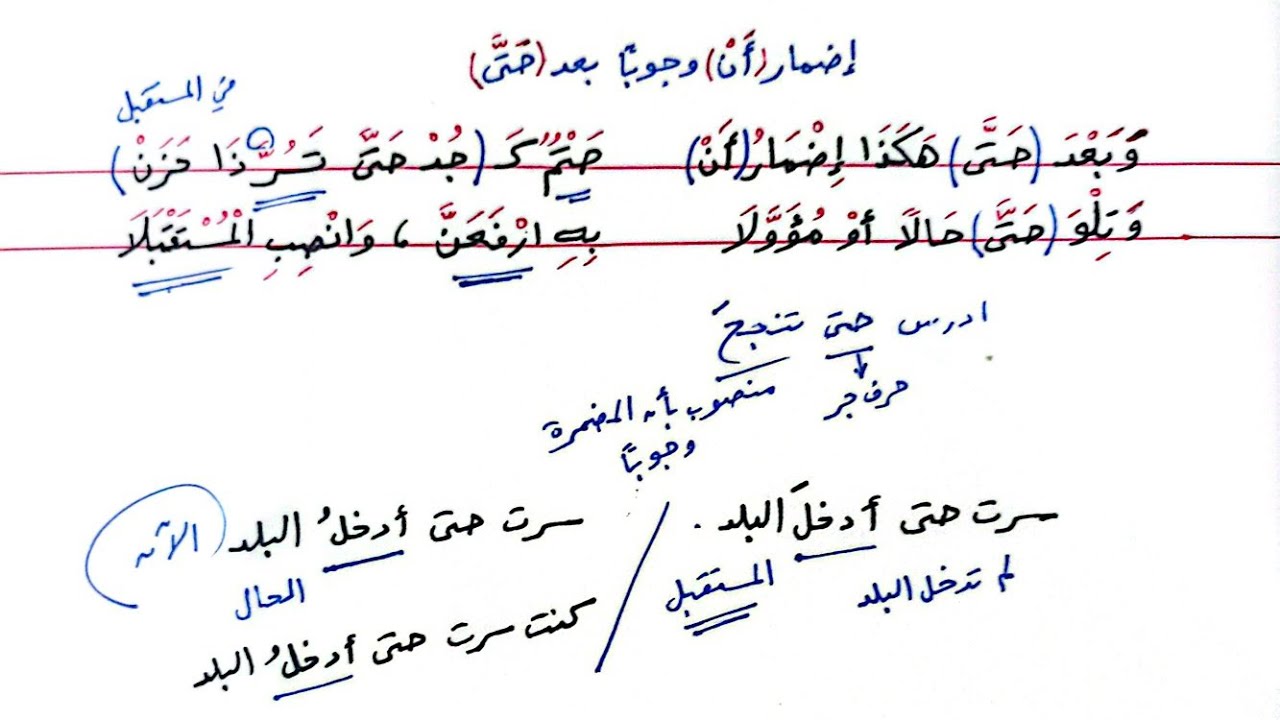 إضمار (أَنْ) وجوبًا بعد (حَتَّى)
في المستقبل
وَبَعْدَ (حَتَّى) هَكَذَا إِضْمَارُ (أَنْ) حَتْمٌ كَـ (جُدْ حَتَّى تَسُرَّ ذَا حَزَنْ)
وَتِلْوَ (حَتَّى) حَالًا أَوْ مُؤَوَّلَا بِهِ ارْفَعَنَّ، وَانْصِبِ الْمُسْتَقْبَلَا
ادرس حتى تنجحَ
حرف جر
منصوب بأن المضمرة
وجوبًا
سرت حتى أدخلَ البلد. / سرت حتى أدخلُ البلد (الآن
لم تدخل البلد المستقبل
الحال
كنت سرت حتى أدخلُ البلد